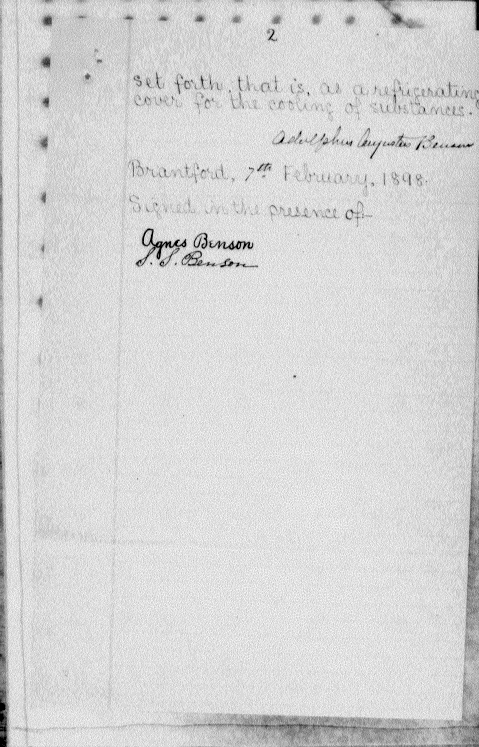 2
set forth, that is, as a refrigerating
cover for the cooling of substances.
Adolphus Augustus Benson
Brantford, 7th February, 1898.
Signed in the presence of
Agnes Benson
S. S. Benson